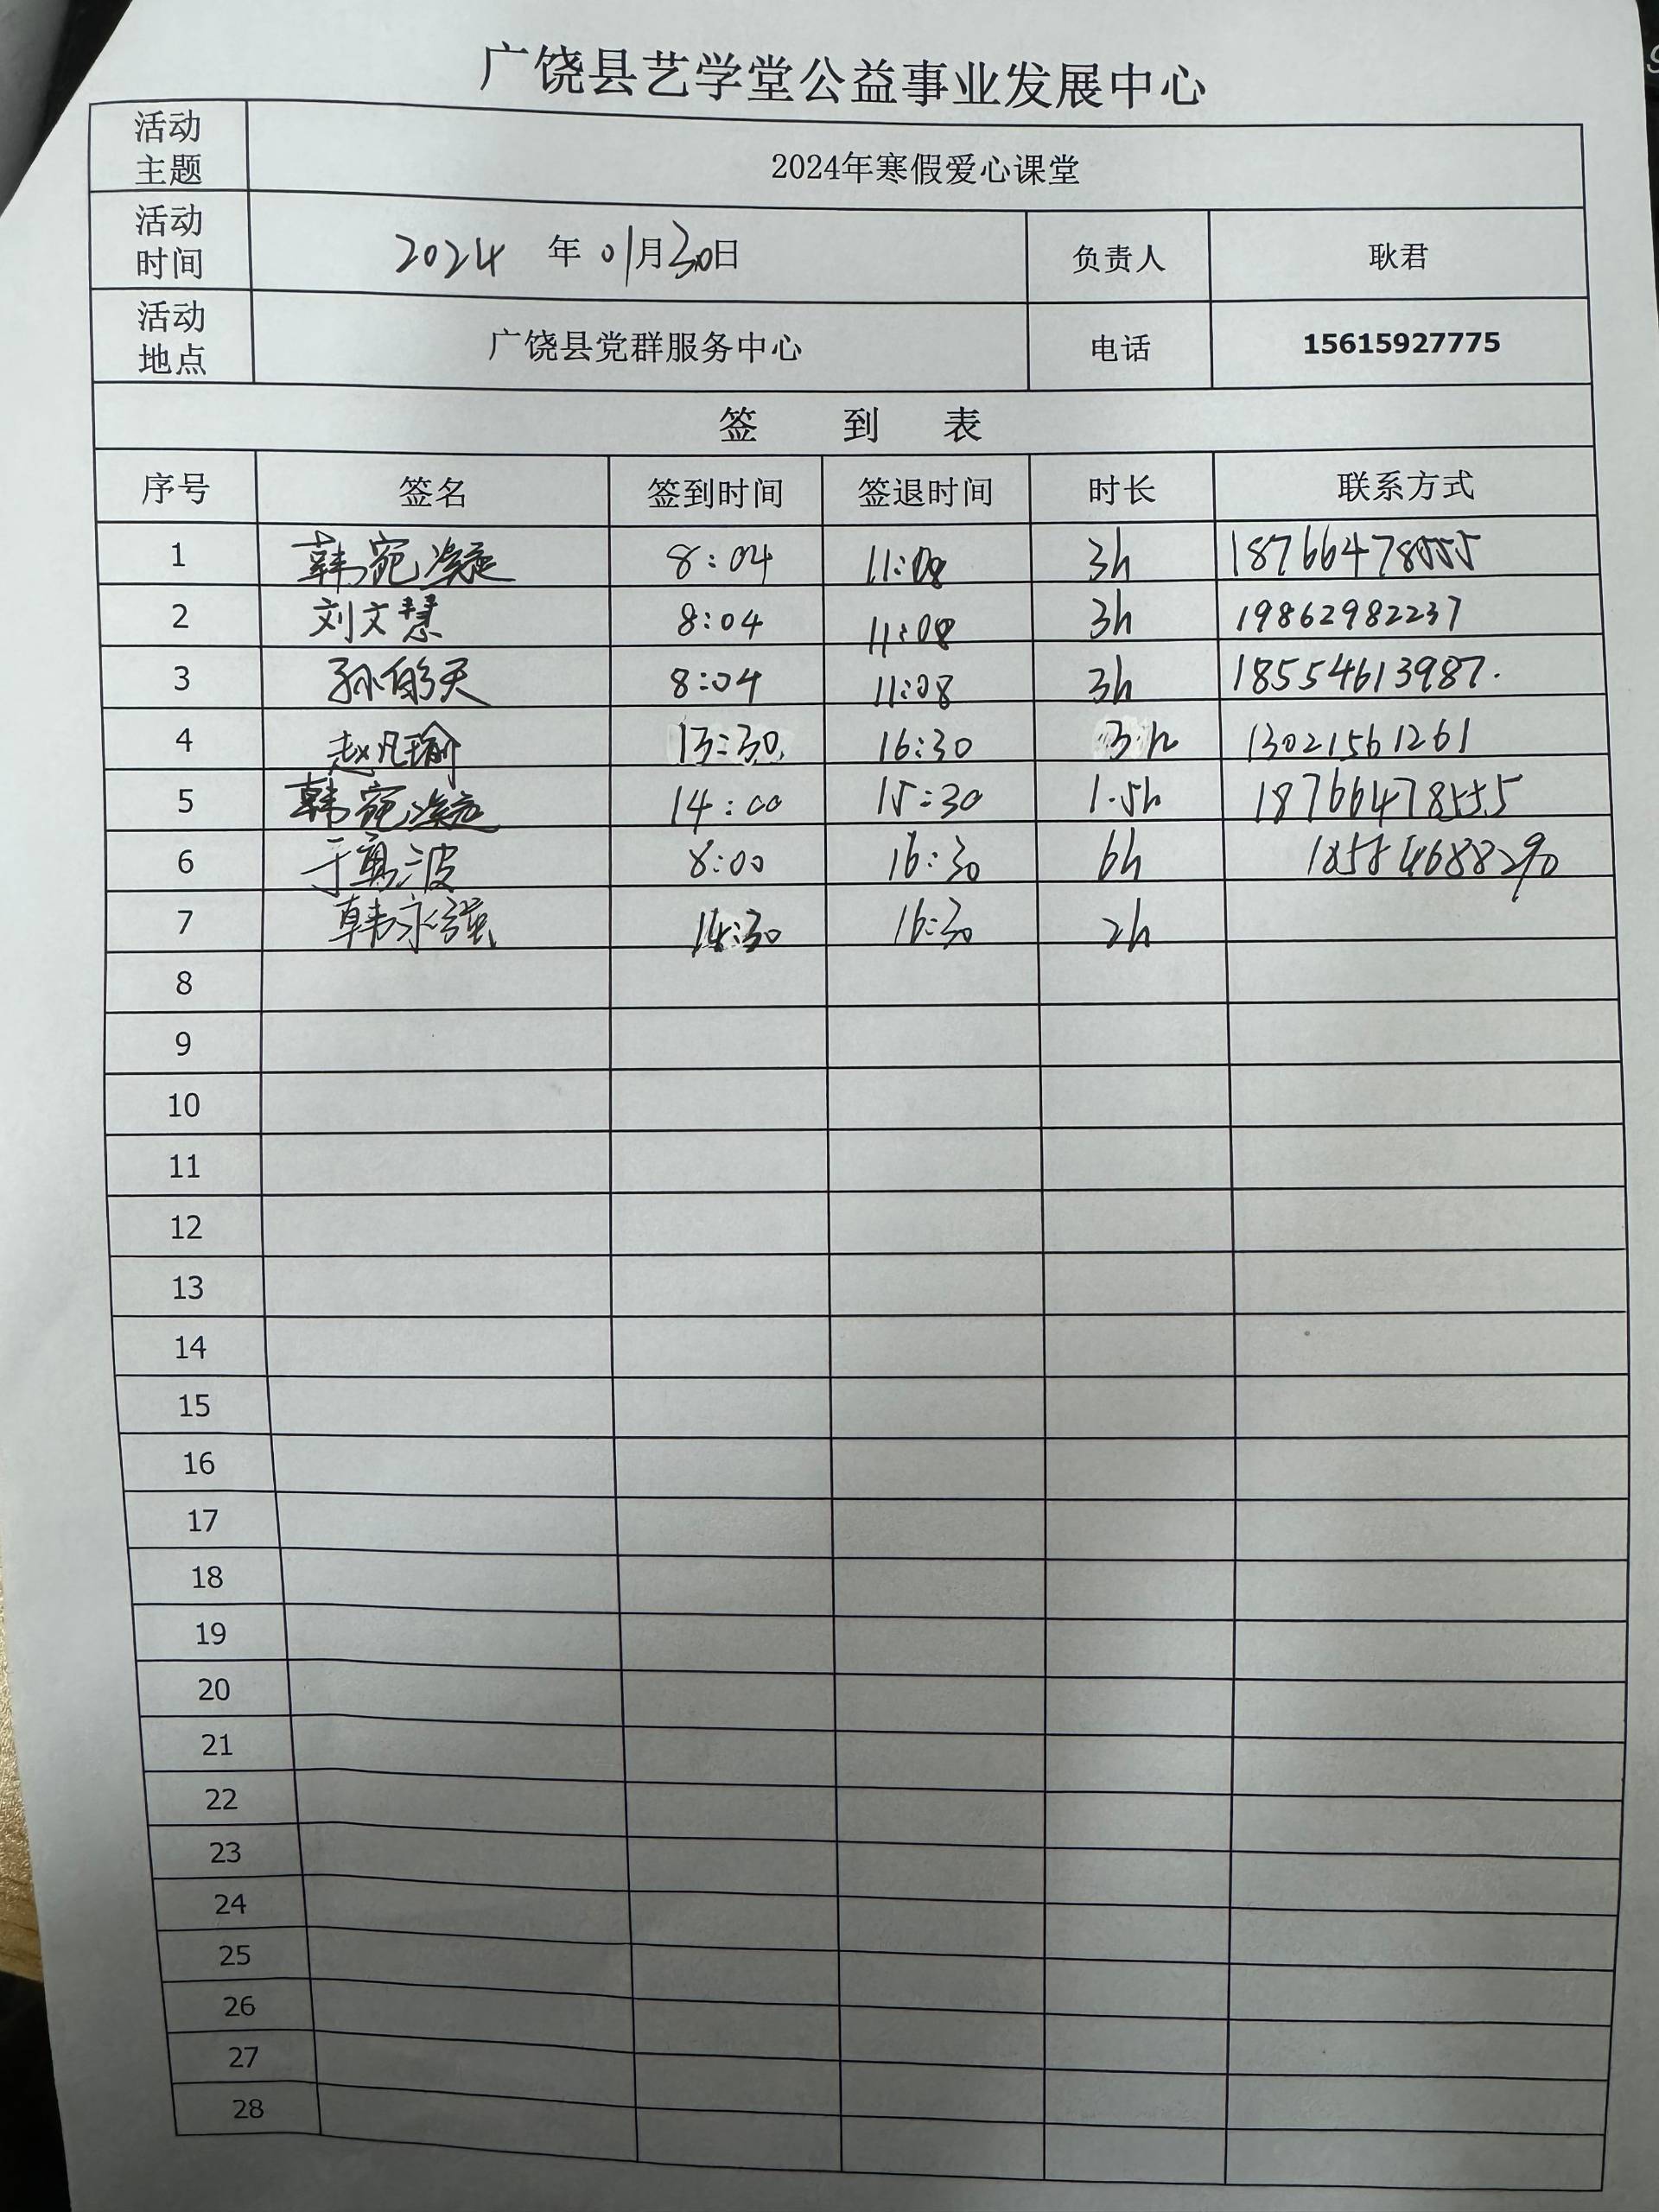 广饶县艺学堂公益事业发展中心
活动主题 2024年寒假爱心课堂
活动时间 2024 年 01月30日 负责人 耿君
活动地点 广饶县党群服务中心 电话 15615927775
签 到 表
序号 签名 签到时间 签退时间 时长 联系方式
1 韩宛凝 8:04 11:08 3h 18766478555
2 刘文慧 8:04 11:08 3h 19862982237
3 8:04 11:08 3h 18554613987.
4 赵凡瑜 13:30 16:30 3h 13021561261
5 韩宛凝 14:00 15:30 1.5h 18766478555
6 8:00 16:30 6h
7 韩永强 14:30 16:30 2h
8
9
10
11
12
13
14
15
16
17
18
19
20
21
22
23
24
25
26
27
28